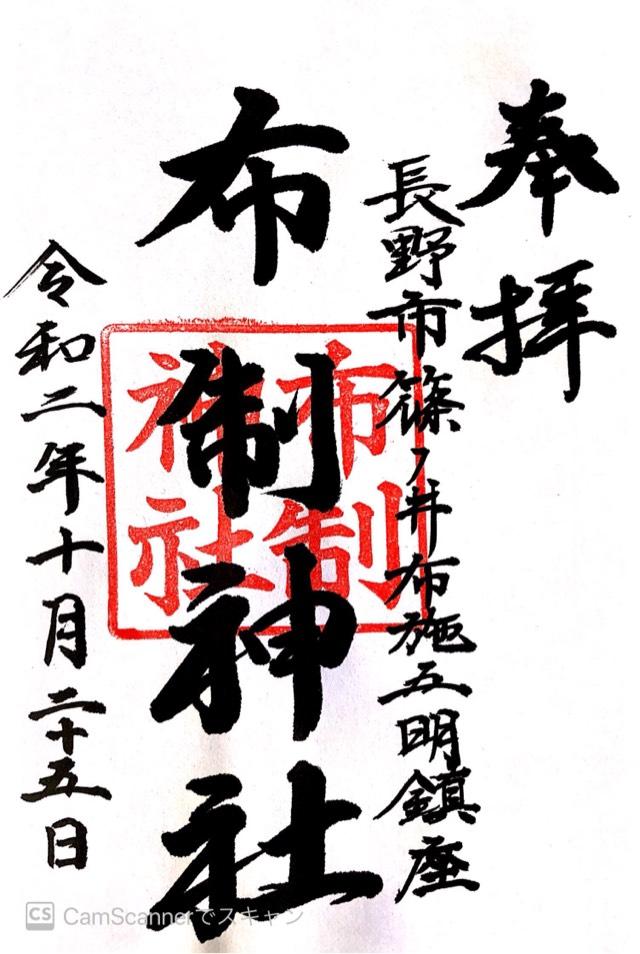 奉拝
長野市篠ノ井布施五明鎮座
布制神社
布制
神社
令和二年十月二十五日
CS CamScannerでスキャン